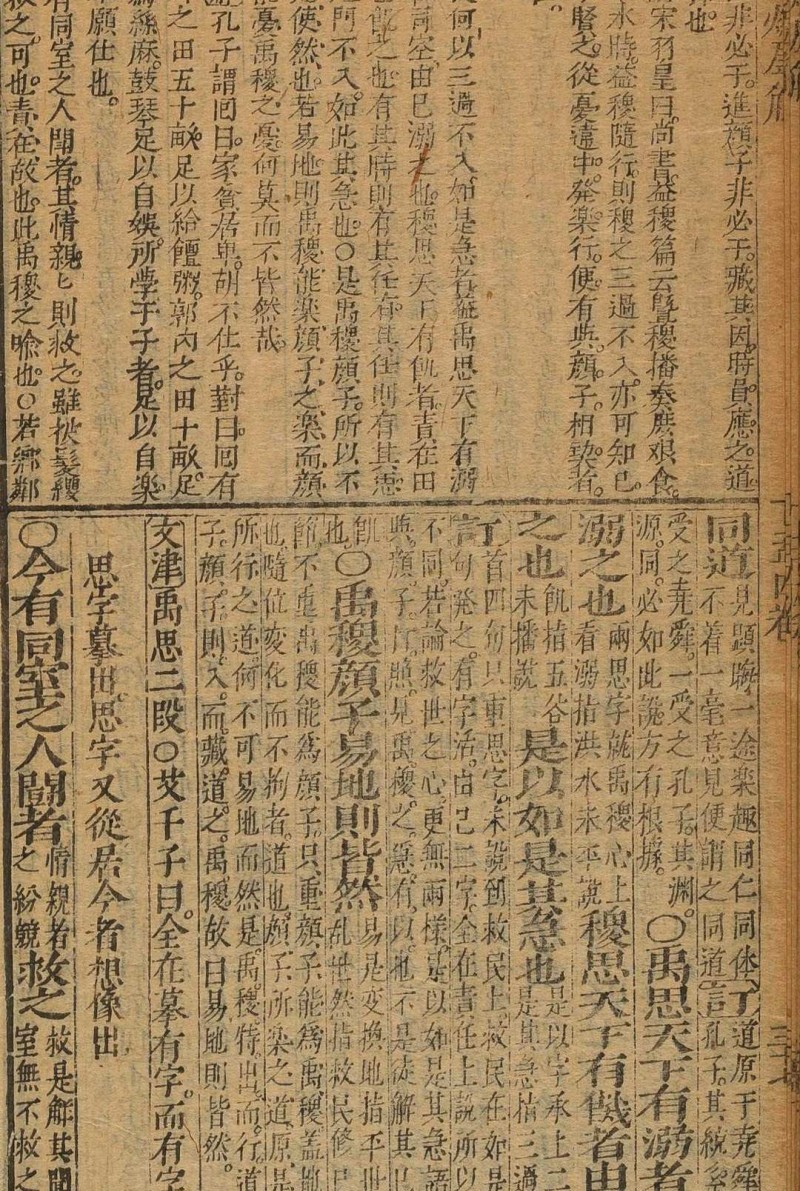 非必于進顏子非必于藏其因時員應之道
也
宋羽皇曰尚書益稷篇云曁稷播奏庶艱食
水時益稷隨行則稷之三過不入亦可知已
賢之從憂違中発楽行便有與顏子相契者
何以三過不入如是急者蓋禹思天下有溺
同室由已溺之也稷思天下有飢者責在田
飢之也有其時則有其任有其任則有其急
門不入如此其急也〇是禹稷顏子所以不
使然也若易地則禹稷能楽顏子之楽而顏
能憂禹稷之憂何莫而不皆然哉
孔子謂囘曰家貧居卑胡不仕乎對曰囘有
之田五十畝足以給饘粥郭內之田十畝足
絲麻鼓琴足以自娛所學于子者足以自楽
願仕也
有同室之人鬪者其情親匕則救之雖被髮纓
救之可也責在故也此禹稷之喩也〇若鄉鄰
同道見顕晦一途楽趣同仁同体訂道原于尭舜
不着一毫意見便謂之同道孔子其統系
受之尭舜一受之孔子其淵
源同必如此說方有根據〇禹思天下有溺者
溺之也兩思字就禹稷心上
看溺指洪水未平說稷思天下有饑者由
之也飢指五谷
未播說是以如是其急也是以字承上二
是其急指三過
訂首四句只重思字未說到救民上救民在如是
句発之有字活由己二字全在責任上說所以
不同若論救世之心更無兩樣是以如是其急語
與顏子行照見禹稷之急有以也不是徒解其已
飢
也〇禹稷顏子易地則皆然易是変換地指平世
乱世然指救民修已
節不重禹稷能為顏子只重顏子能為禹稷蓋地
也隨位変化而不拘者道也顏子所楽之道原是
所行之道何不可易地而然是禹稷特出而行道
子顏子則入而藏道之禹稷故曰易地則皆然
文津禹思二段〇艾千子曰全在摹有字而有字
思字摹出思字又從居今者想像出
〇今有同室之人鬪者情親者
之紛競救之救是解其鬪
室無不救之
十五四卷
三十七